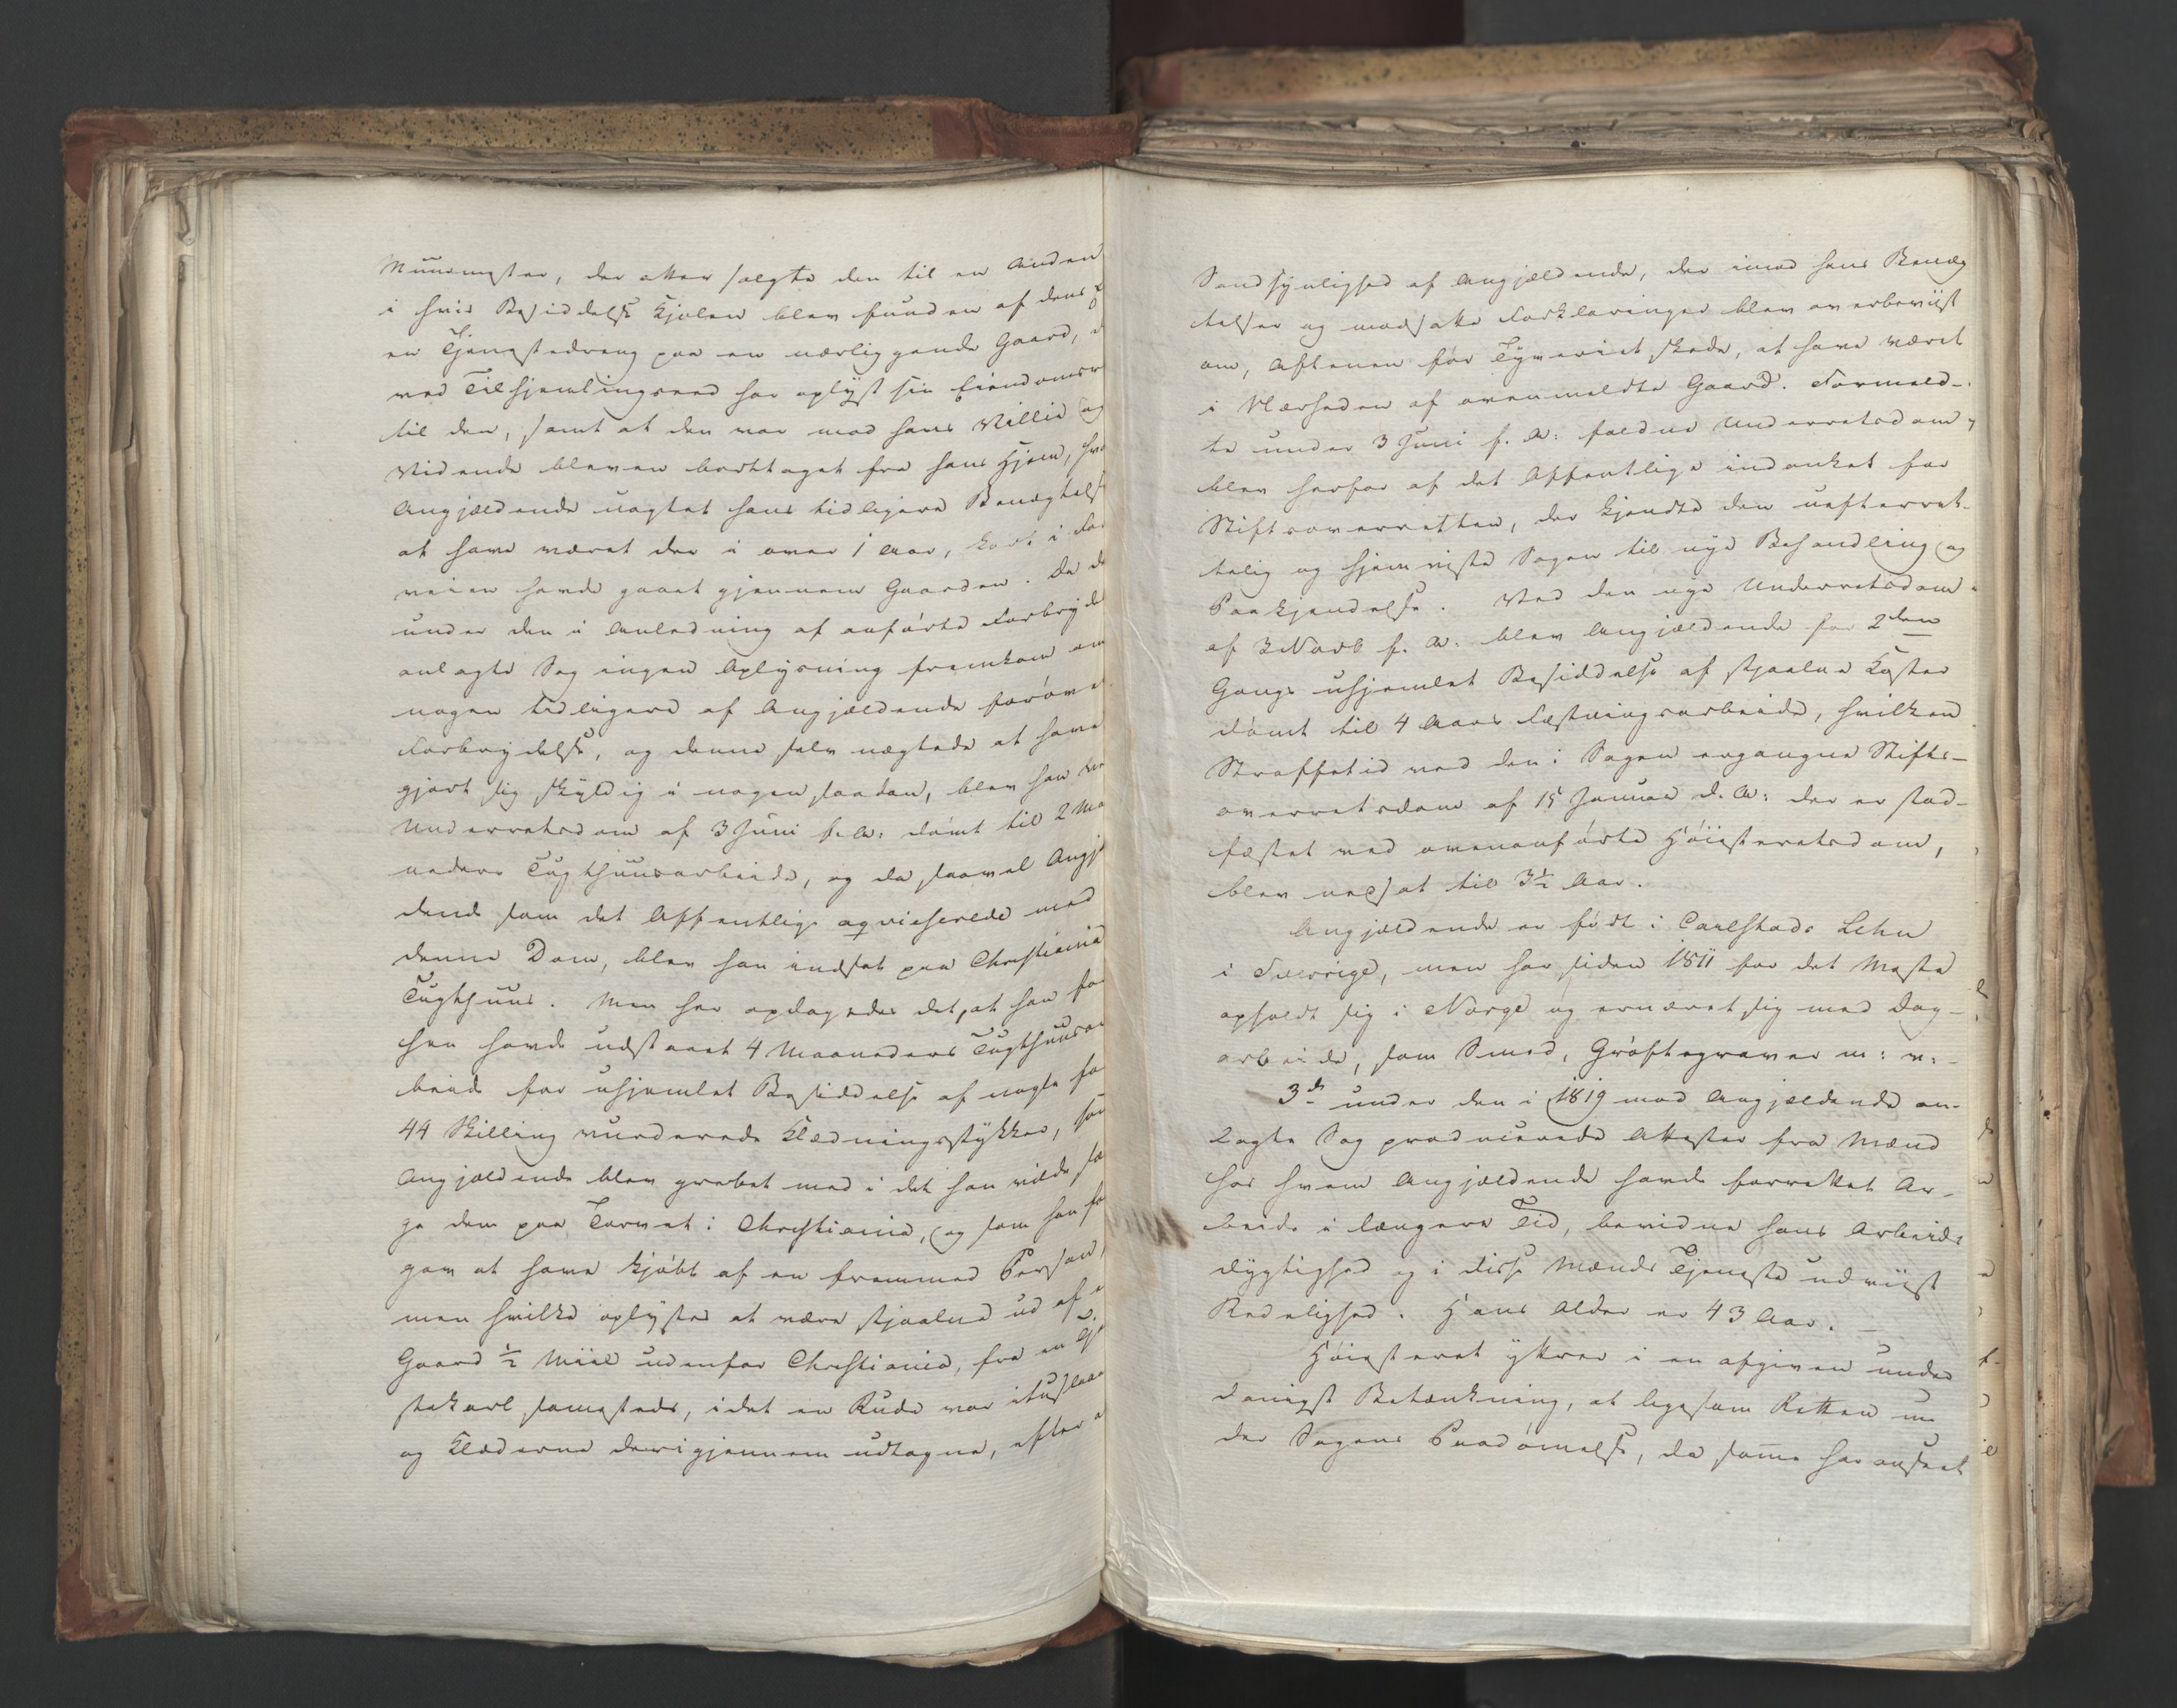 Muurmester, der atter solgte den til en Anden
i hvis Besiddelse Kjolen blev funden af dens
en Tjenestedreng paa en nærliggende Gaard,
ved Tilhjemlingseed har oplyst sin Eiendoms
til den, samt at den var mod hans Villie og
Vidende bleven borttaget fra hans Hjem,
Angjældende uagtet hans tidligere Benægtelse
at have været der i over 1 Aar, kort i
veien havde gaaet gjennem Gaarden. Da
under den i Anledning af anførte Forbryd
anlagte Sag ingen Oplysning fremkom om
nogen tidligere af Angjældende forøve
Forbrydelse, og denne selv nægtede at have
gjort sig skyldig i nogen saadan, blev han ve
Underretsdom af 3 Juni f. A: dømt til 2 Ma
neders Tugthuusarbeide, og da saavel Angjæ
dende som det Offentlige aqvieserede med
denne Dom, blev han indsat paa Christiania
Tugthuus. Men her opdagedes det, at han for
hen havde udstaaet 4 Maaneders Tugthuusar
beide for uhjemlet Besiddelse af nogle for
44 Skilling vurderede Klædningsstykker, som
Angjældende blev grebet med i det han vilde sæ
ge dem paa Torvet i Christiania, og som han for
gav at have kjøbt af en fremmed Person,
men hvilke oplystes at være stjaalne ud af
Gaard ½ Miil udenfor Christiania, fra en Tje
stekarl samesteds, idet en Rude var itusslaa
og Klæderne derigjennem udtagne, efter
Sandsynlighed af Angjældende, der imod hans Benæg
telser og modsatte Forklaringer blev overbeviist
om, Aftenen før Tyveriet skede, at have været
i Nærheden af ovenmeldte Gaard. Formeld-
te under 3 Juni f. A: faldne Underretsdom,
blev herfor af det Offentlige indanket for
Stiftsoverretten, der kjendte den uefterret-
telig og hjemviste Sagen til nye Behandling og
Paakjendelse. Ved den nye Underretsdom
af 3 Novb f. A: blev Angjældende for 2den
Gangs uhjemlet Besiddelse af stjaalne Koster
dømt til 4 Aars Fæstningsarbeide, hvilken
Straffetid ved den i Sagen ergangne Stifts-
overretsdom af 15 Januar d. A: der er stad-
fæstet ved ovenanførte Høiesteretsdom,
blev nedsat til 3½ Aar.
Angjældende er født i Carlstads Lehn
i Sverrige, men har siden 1811 for det Meste
opholdt sig i Norge og ernæret sig med Dag-
arbeide, som Smed, Grøftegraver m: v:
3de under den i 1819 mod Angjældende an-
lagte Sag producerede Attester fra Mænd
hos hvem Angjældende havde forrettet Ar-
beide i længere Tid, bevidne hans Arbeids
dygtighed og i disse Mænds Tjeneste udviist
Redelighed. Hans Alder er 43 Aar.
Høiesteret yttrer i en afgiven under
danigst Betænkning, at ligesom Retten un
der Sagens Paadømelse, da samme har anseet